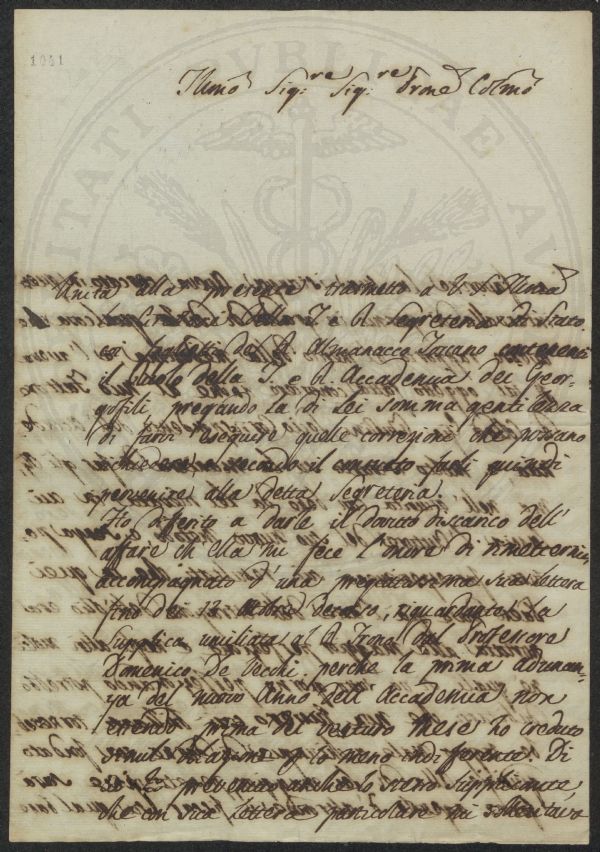 1041
Illmo Sig.re Sig.re Prone Colmo
Unita alla presente trasmetto a V. S. Illma
la Circolare della I. e R. Segreteria di Stato
coi foglietti del R. Almanacco Toscano contenenti
il Ruolo della I. e R. Accademia dei Geor-
gofili, pregando la di Lei somma gentilezza
di farvi eseguire quelle correzioni che possano
richiedersi e secondo il consueto farli quindi
pervenire alla detta Segreteria.
Ho differito a darle il dovuto discarico dell'
affare ch'ella mi fece l'onore di rimettermi
accompagnato d'una pregiatissima sua lettera
fino dei 12 Ottobre decorso, riguardante la
supplica umiliata al R. Trono dal Professore
Domenico De Vecchi, perche la prima adunan-
za del nuovo Anno dell'Accademia non
essendo prima del venturo Mese ho creduto
dilazione per lo meno indifferente. Di
ciò prevenuto anche lo stesso Supplicante,
che con sua lettera particolare mi sollecitava